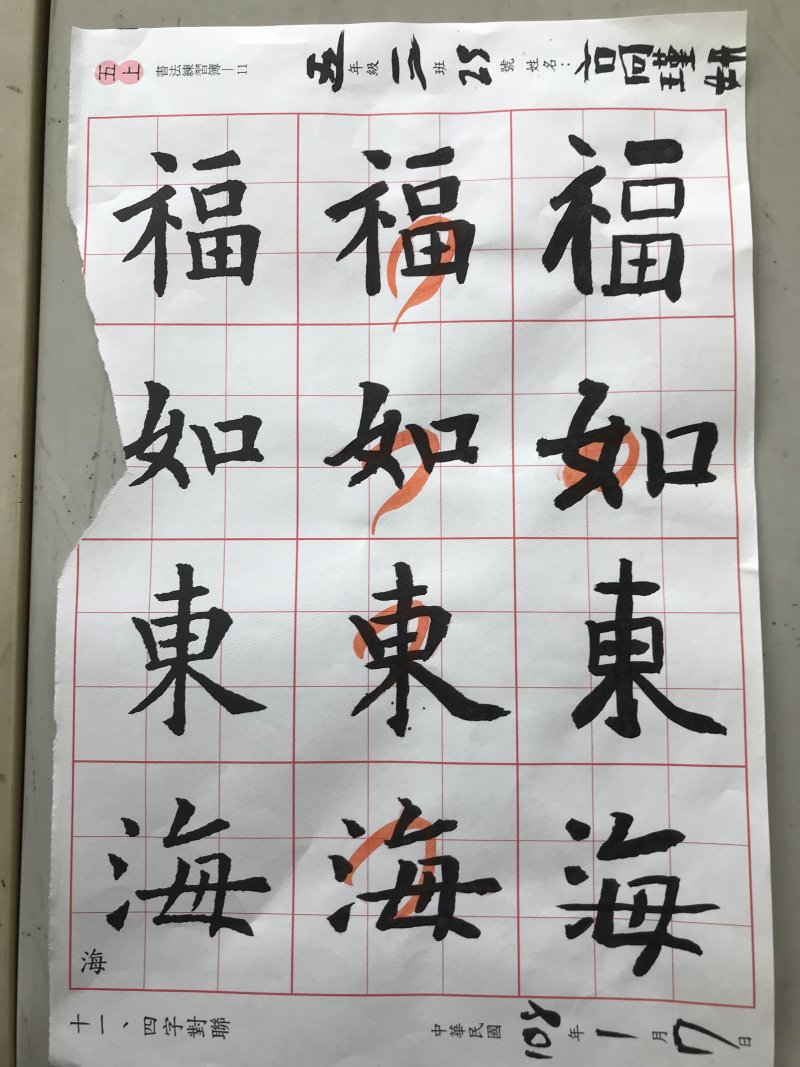 五上 書法練習簿—11
五年級 班 25 號 姓名: 瑾妍
福如東海
福如東海
福如東海
海
十一、四字對聯
中華民國 108 年 1 月 7 日